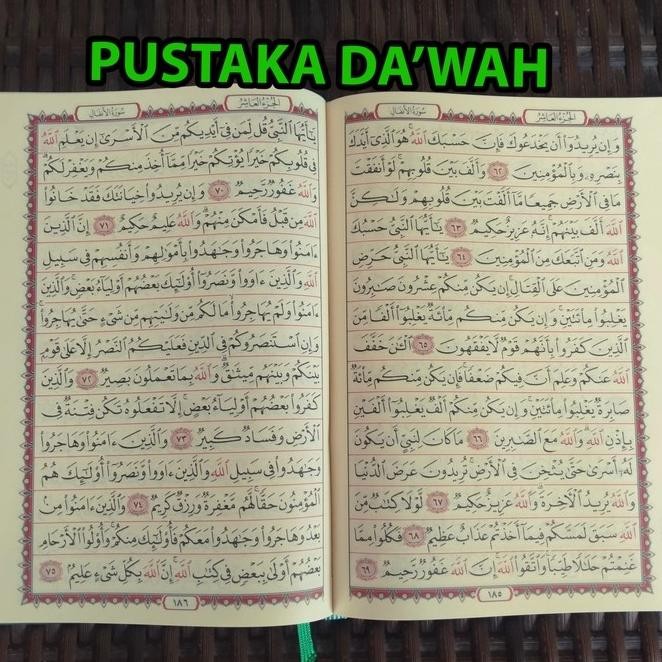 PUSTAKA DA'WAH
الجزء العاشر
سورة الأنفال
وَإِن يُرِيدُوٓا۟ أَن يَخْدَعُوكَ فَإِنَّ حَسْبَكَ ٱللَّهُ هُوَ ٱلَّذِىٓ أَيَّدَكَ
بِنَصْرِهِۦ وَبِٱلْمُؤْمِنِينَ ٦٢ وَأَلَّفَ بَيْنَ قُلُوبِهِمْ لَوْ أَنفَقْتَ
مَا فِى ٱلْأَرْضِ جَمِيعًا مَّآ أَلَّفْتَ بَيْنَ قُلُوبِهِمْ وَلَـٰكِنَّ
ٱللَّهَ أَلَّفَ بَيْنَهُمْ إِنَّهُۥ عَزِيزٌ حَكِيمٌ ٦٣ يَـٰٓأَيُّهَا ٱلنَّبِىُّ حَسْبُكَ
ٱللَّهُ وَمَنِ ٱتَّبَعَكَ مِنَ ٱلْمُؤْمِنِينَ ٦٤ يَـٰٓأَيُّهَا ٱلنَّبِىُّ حَرِّضِ
ٱلْمُؤْمِنِينَ عَلَى ٱلْقِتَالِ إِن يَكُن مِّنكُمْ عِشْرُونَ صَـٰبِرُونَ
يَغْلِبُوا۟ مِا۟ئَتَيْنِ وَإِن يَكُن مِّنكُم مِّا۟ئَةٌ يَغْلِبُوٓا۟ أَلْفًا مِّنَ
ٱلَّذِينَ كَفَرُوا۟ بِأَنَّهُمْ قَوْمٌ لَّا يَفْقَهُونَ ٦٥ ٱلْـَٔـٰنَ خَفَّفَ
ٱللَّهُ عَنكُمْ وَعَلِمَ أَنَّ فِيكُمْ ضَعْفًا فَإِن يَكُن مِّنكُم مِّا۟ئَةٌ
صَابِرَةٌ يَغْلِبُوا۟ مِا۟ئَتَيْنِ وَإِن يَكُن مِّنكُمْ أَلْفٌ يَغْلِبُوٓا۟ أَلْفَيْنِ
بِإِذْنِ ٱللَّهِ وَٱللَّهُ مَعَ ٱلصَّـٰبِرِينَ ٦٦ مَا كَانَ لِنَبِىٍّ أَن يَكُونَ
لَهُۥٓ أَسْرَىٰ حَتَّىٰ يُثْخِنَ فِى ٱلْأَرْضِ تُرِيدُونَ عَرَضَ ٱلدُّنْيَا
وَٱللَّهُ يُرِيدُ ٱلْـَٔاخِرَةَ وَٱللَّهُ عَزِيزٌ حَكِيمٌ ٦٧ لَّوْلَا كِتَـٰبٌ مِّنَ
ٱللَّهِ سَبَقَ لَمَسَّكُمْ فِيمَآ أَخَذْتُمْ عَذَابٌ عَظِيمٌ ٦٨ فَكُلُوا۟ مِمَّا
غَنِمْتُمْ حَلَـٰلًا طَيِّبًا وَٱتَّقُوا۟ ٱللَّهَ إِنَّ ٱللَّهَ غَفُورٌ رَّحِيمٌ ٦٩
١٨٥
الجزء العاشر
سورة الأنفال
يَـٰٓأَيُّهَا ٱلنَّبِىُّ قُل لِّمَن فِىٓ أَيْدِيكُم مِّنَ ٱلْأَسْرَىٰٓ إِن يَعْلَمِ ٱللَّهُ
فِى قُلُوبِكُمْ خَيْرًا يُؤْتِكُمْ خَيْرًا مِّمَّآ أُخِذَ مِنكُمْ وَيَغْفِرْ لَكُمْ
وَٱللَّهُ غَفُورٌ رَّحِيمٌ ٧٠ وَإِن يُرِيدُوا۟ خِيَانَتَكَ فَقَدْ خَانُوا۟
ٱللَّهَ مِن قَبْلُ فَأَمْكَنَ مِنْهُمْ وَٱللَّهُ عَلِيمٌ حَكِيمٌ ٧١ إِنَّ ٱلَّذِينَ
ءَامَنُوا۟ وَهَاجَرُوا۟ وَجَـٰهَدُوا۟ بِأَمْوَٰلِهِمْ وَأَنفُسِهِمْ فِى سَبِيلِ
ٱللَّهِ وَٱلَّذِينَ ءَاوَوا۟ وَّنَصَرُوٓا۟ أُو۟لَـٰٓئِكَ بَعْضُهُمْ أَوْلِيَآءُ بَعْضٍ وَٱلَّذِينَ
ءَامَنُوا۟ وَلَمْ يُهَاجِرُوا۟ مَا لَكُم مِّن وَلَـٰيَتِهِم مِّن شَىْءٍ حَتَّىٰ يُهَاجِرُوا۟
وَإِنِ ٱسْتَنصَرُوكُمْ فِى ٱلدِّينِ فَعَلَيْكُمُ ٱلنَّصْرُ إِلَّا عَلَىٰ قَوْمٍۭ
بَيْنَكُمْ وَبَيْنَهُم مِّيثَـٰقٌ وَٱللَّهُ بِمَا تَعْمَلُونَ بَصِيرٌ ٧٢ وَٱلَّذِينَ
كَفَرُوا۟ بَعْضُهُمْ أَوْلِيَآءُ بَعْضٍ إِلَّا تَفْعَلُوهُ تَكُن فِتْنَةٌ فِى
ٱلْأَرْضِ وَفَسَادٌ كَبِيرٌ ٧٣ وَٱلَّذِينَ ءَامَنُوا۟ وَهَاجَرُوا۟
وَجَـٰهَدُوا۟ فِى سَبِيلِ ٱللَّهِ وَٱلَّذِينَ ءَاوَوا۟ وَّنَصَرُوٓا۟ أُو۟لَـٰٓئِكَ هُمُ
ٱلْمُؤْمِنُونَ حَقًّا لَّهُم مَّغْفِرَةٌ وَرِزْقٌ كَرِيمٌ ٧٤ وَٱلَّذِينَ ءَامَنُوا۟ مِنۢ
بَعْدُ وَهَاجَرُوا۟ وَجَـٰهَدُوا۟ مَعَكُمْ فَأُو۟لَـٰٓئِكَ مِنكُمْ وَأُو۟لُوا۟ ٱلْأَرْحَامِ
بَعْضُهُمْ أَوْلَىٰ بِبَعْضٍ فِى كِتَـٰبِ ٱللَّهِ إِنَّ ٱللَّهَ بِكُلِّ شَىْءٍ عَلِيمٌۢ ٧٥
١٨٦